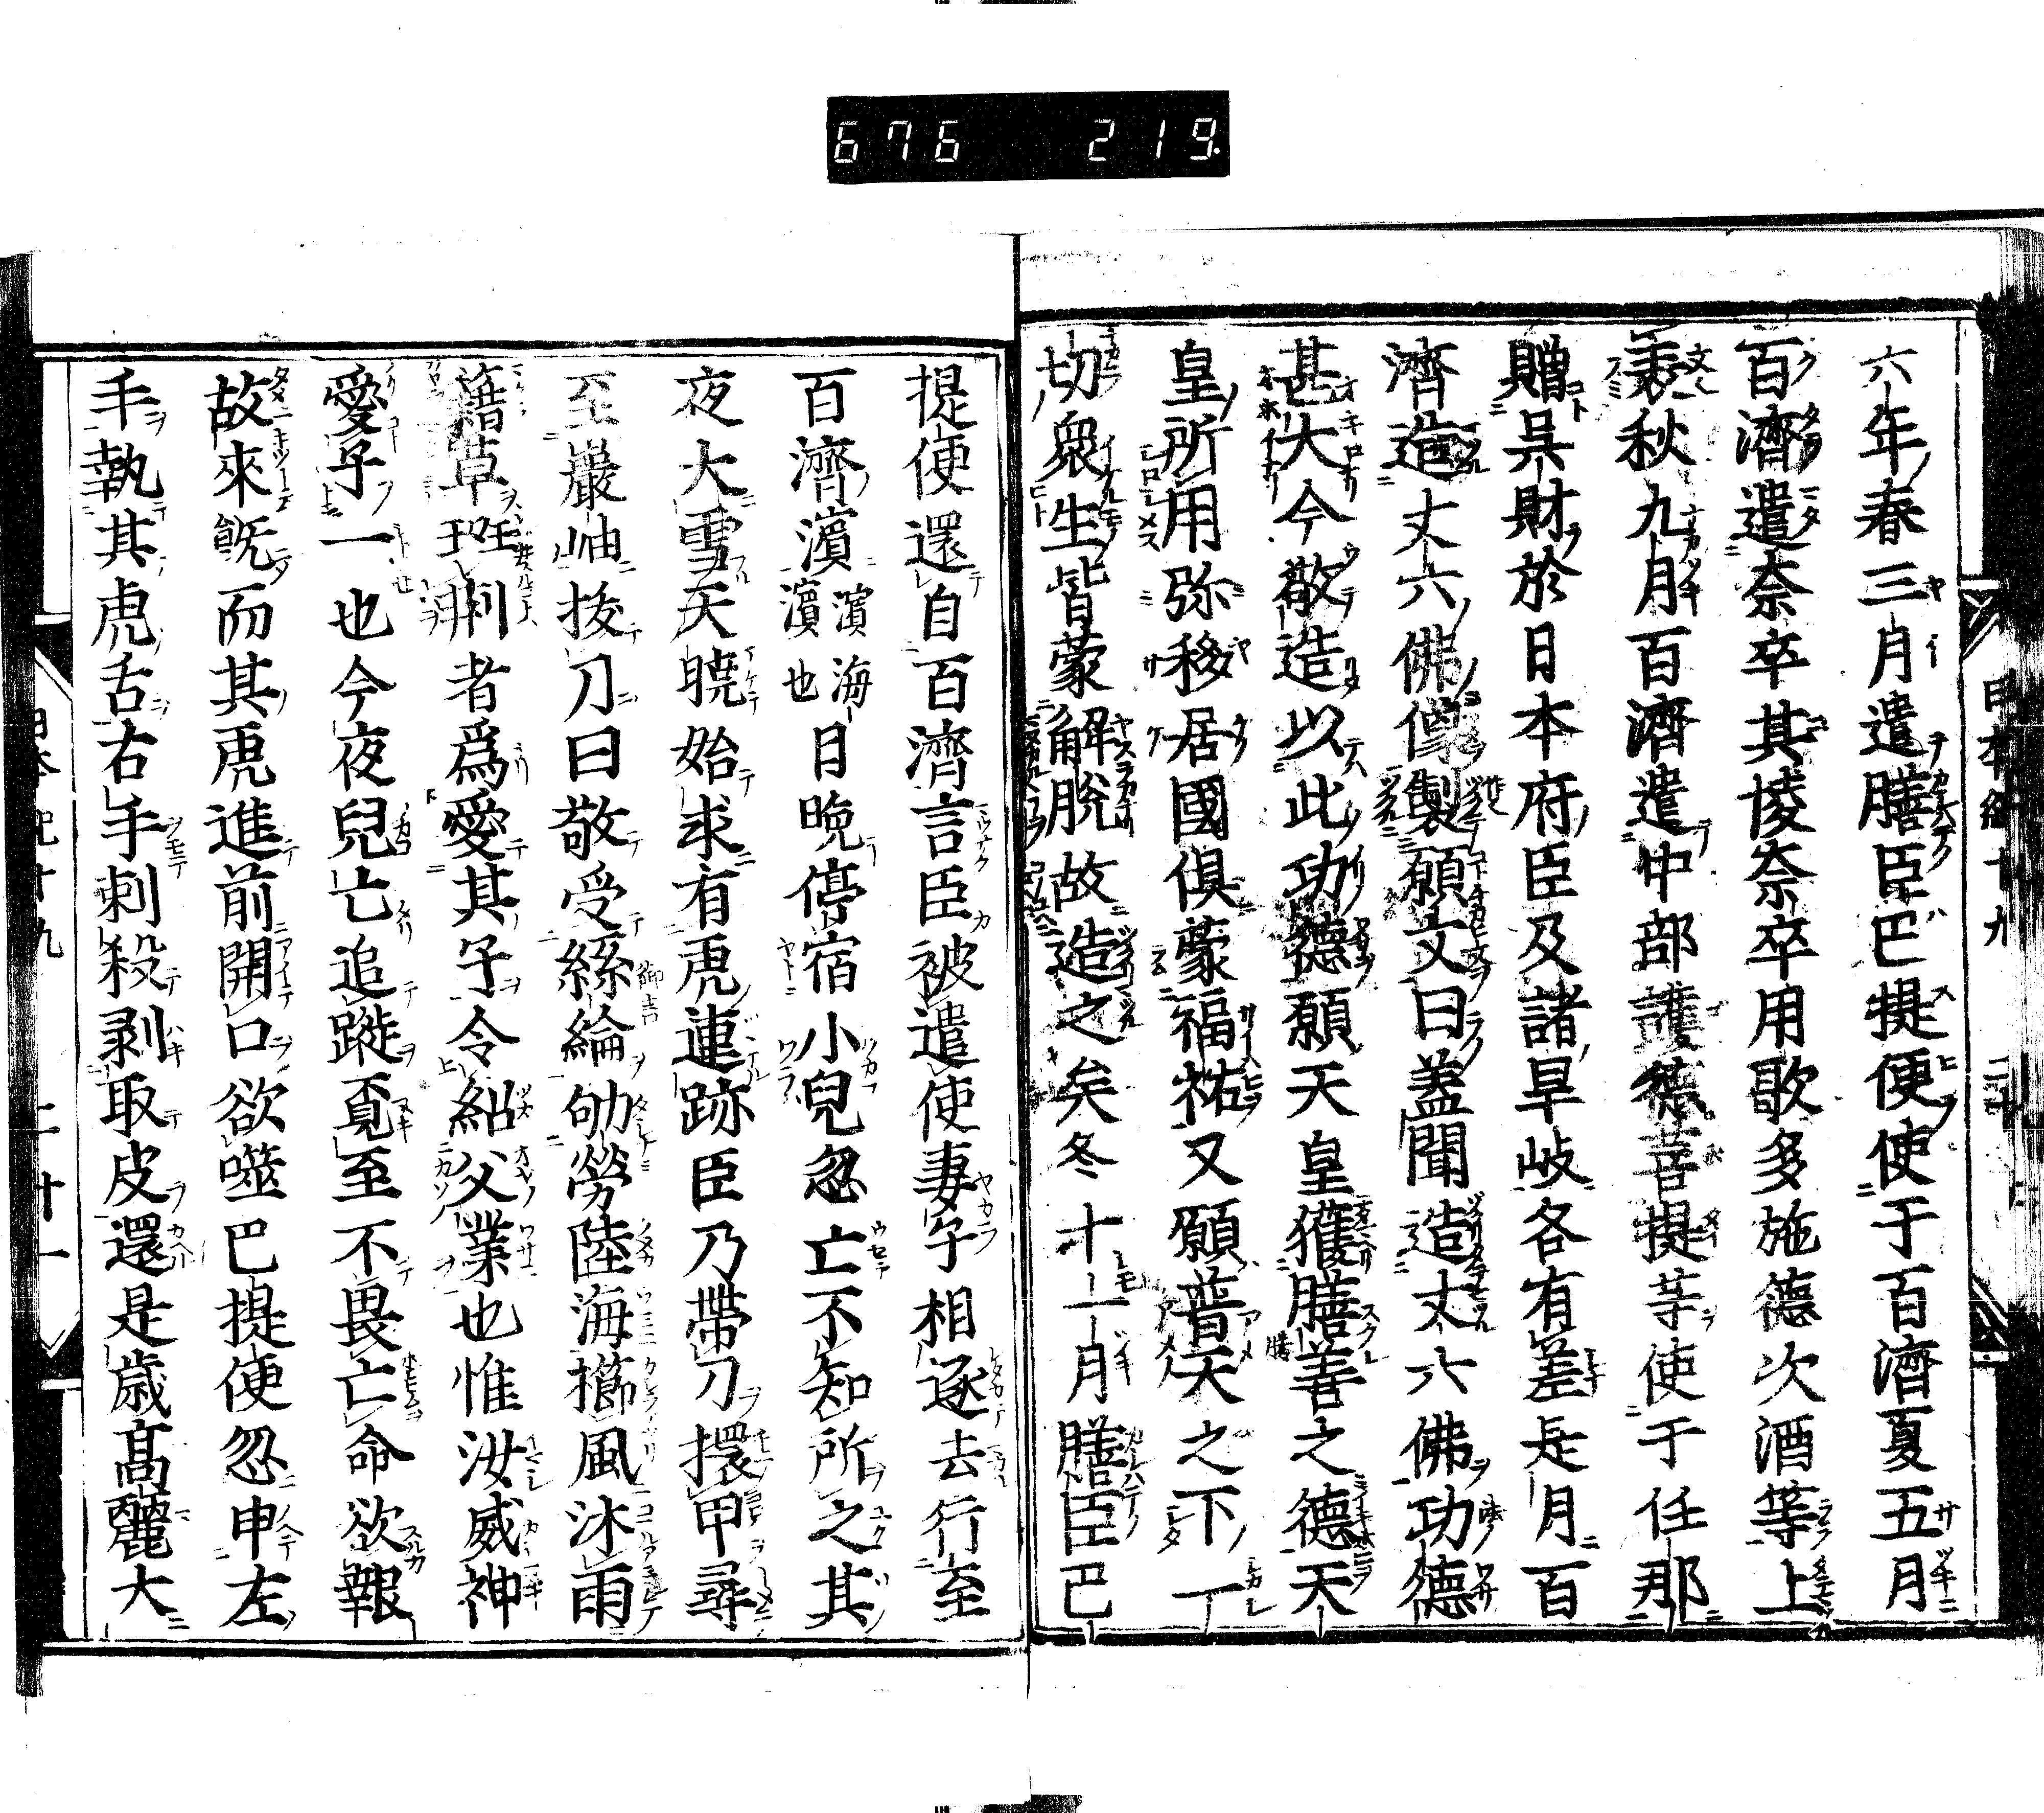 676 219
六年春三月遣膳臣巴提便使于百濟夏五月
百濟遣奈卒其㥄奈卒用歌多施德次酒等上
表秋九月百濟遣中部護德菩提等使于任那
贈吳財於日本府臣及諸旱岐各有差是月百
濟造丈六佛像製願文曰蓋聞造丈六佛功德
甚大今敬造以此功德願天皇獲勝善之德天
皇所用弥移居國俱蒙福祐又願普天之下一
切衆生皆蒙解脫故造之矣冬十一月膳臣巴
日本紀十九 二十
提便還自百濟言臣被遣使妻子相逐去行至
百濟濵濵海濵也日晚停宿小兒忽亡不知所之其
夜大雪天曉始求有虎連跡臣乃帶刀擐甲尋
至巖岫拔刀曰敬受絲綸劬勞陸海櫛風沐雨
藉草班荊者爲愛其子令紹父業也惟汝威神
愛子一也今夜兒亡追蹤覓至不畏亡命欲報
故來旣而其虎進前開口欲噬巴提便忽申左
手執其虎舌右手刺殺剥取皮還是歲髙麗大
日本紀十九 二十一